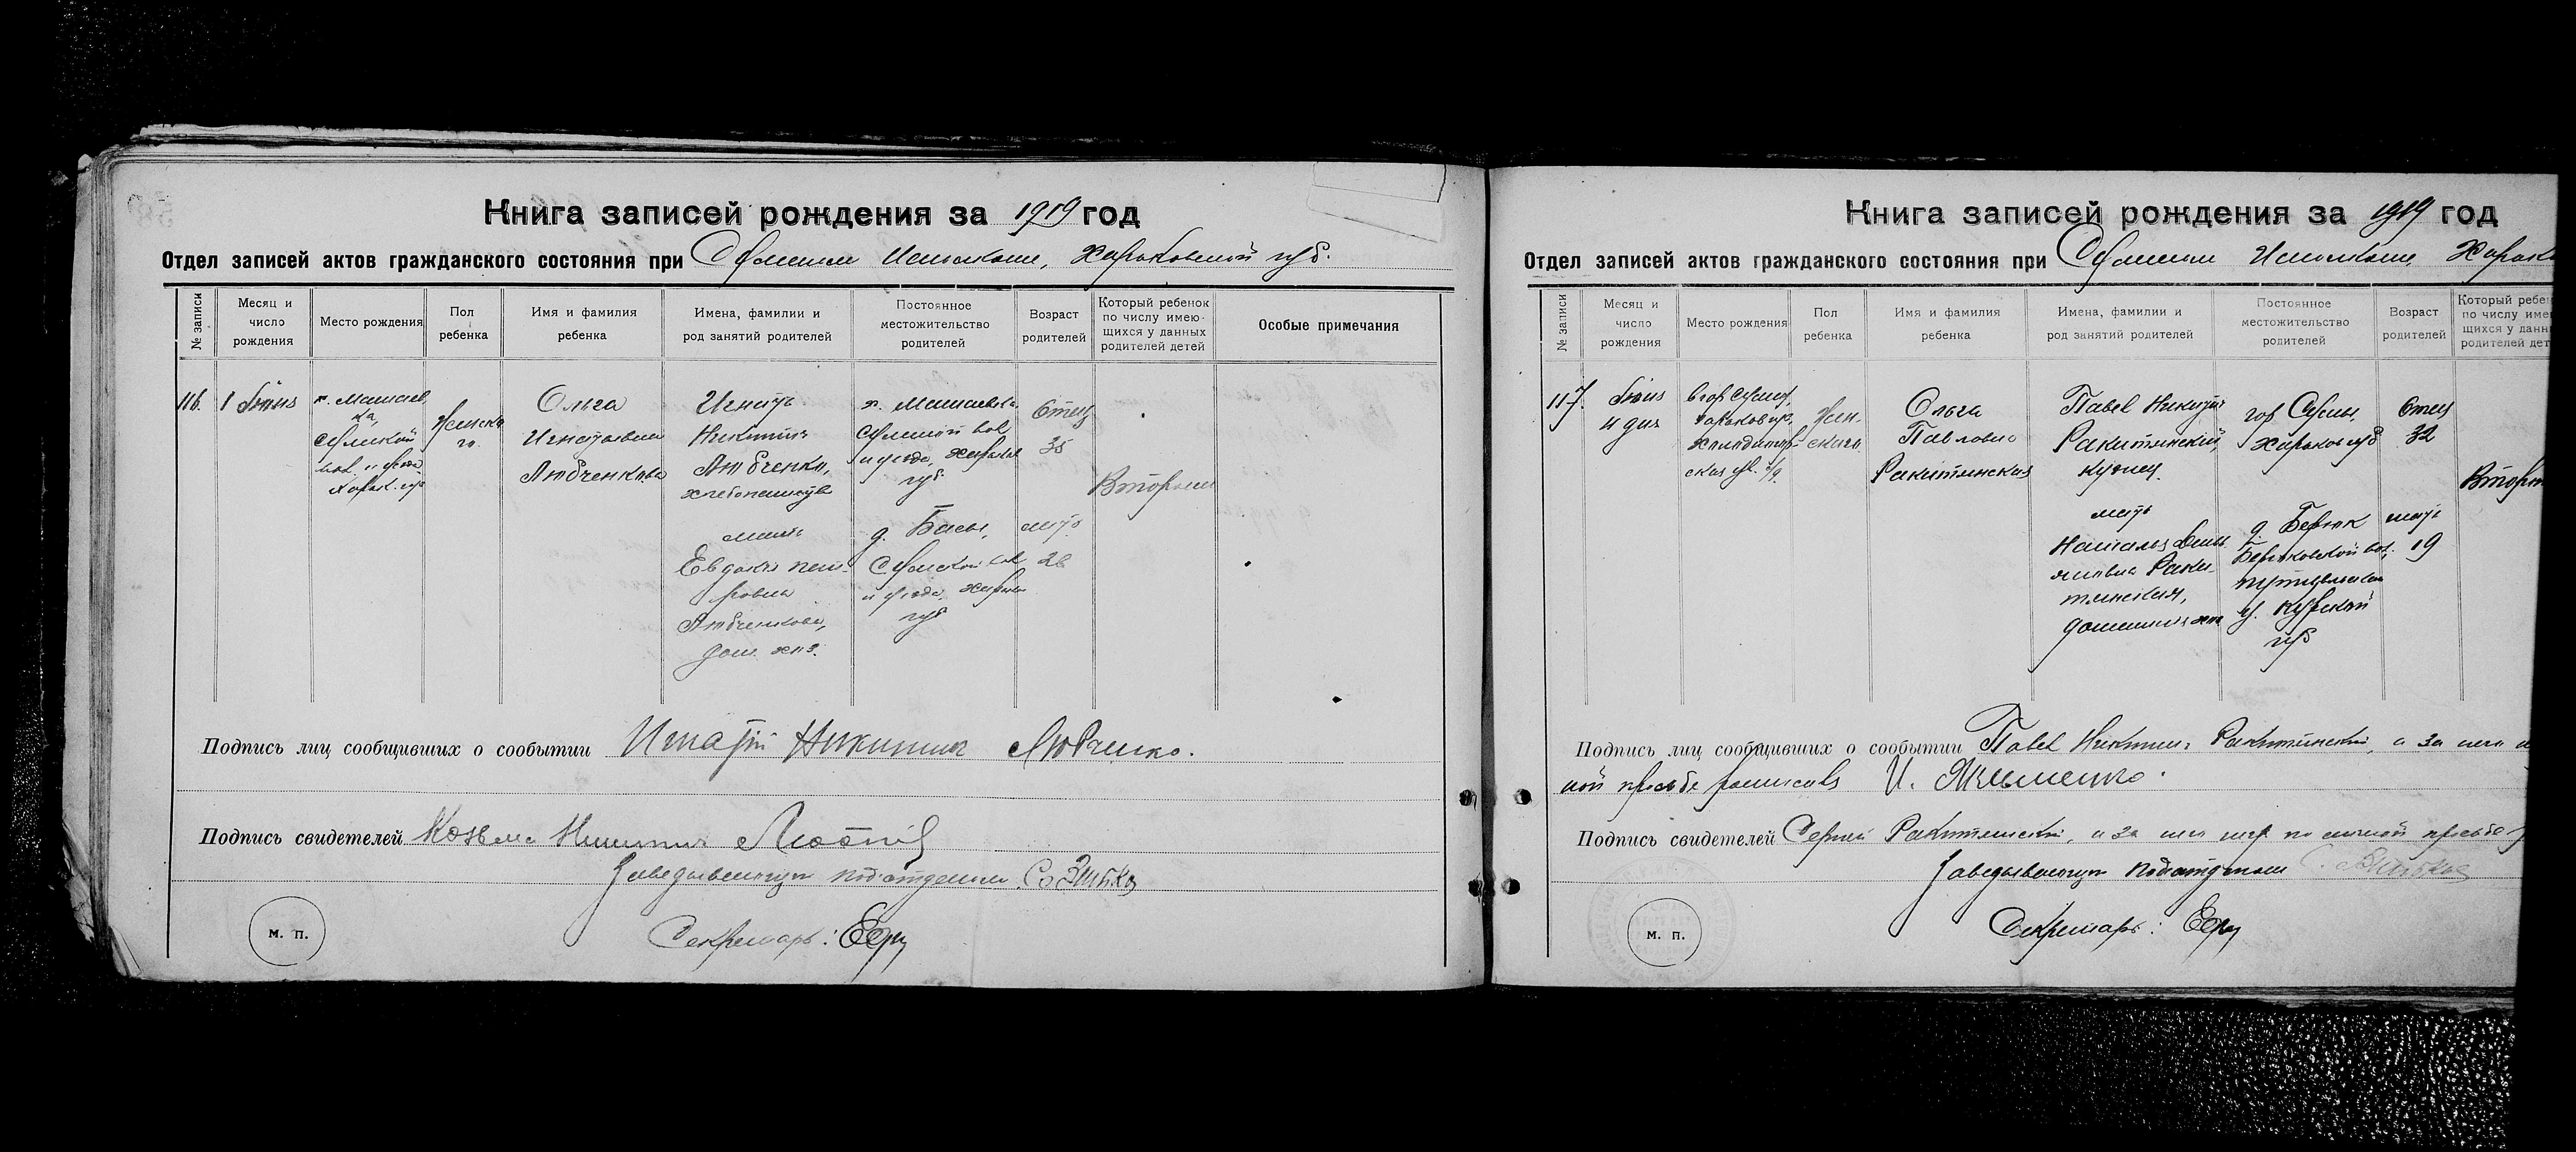 Книга записей рождения за 1919 год
Отдел записей актов гражданского состояния при Сумском Исполкоме, Харьковской губ.
№ записи
Месяц и
число
рождения
Место рождения
Пол
ребенка
Имя и фамилия
ребенка
Имена, фамилии и
род занятий родителей
Постоянное
местожительство
родителей
Возраст
родителей
Который ребенок
по числу имею-
щихся у данных
родителей детей
Особые примечания
116.
1 Июня
Сумской
вол. и уезда
Харьк. губ
Женска
го.
Ольга
Игнатьевна
Любченкова
Игнатъ
Никитинъ
Любченко,
хлебопашецъ
мать
Евдокия Пет-
ровна
Любченкова,
дом. хоз.
Сумской вол
и уезда, Харьков
губ.
д. Басы,
Сумской вол
и уезда, Харьков
губ
Отец
35
мать
28
Вторым
Подпись лиц сообщивших о сообытии Игнатий Никитин Любченко.
Подпись свидетелей Козьма Никитич
Заведывающий подотделом С. Зинько
Секретарь:
м. п.
Книга записей рождения за 1919 год
Отдел записей актов гражданского состояния при Сумском Исполкоме, Харьк
№ записи
Месяц и
число
рождения
Место рождения
Пол
ребенка
Имя и фамилия
ребенка
Имена, фамилии и
род занятий родителей
Постоянное
местожительство
родителей
Возраст
родителей
Который ребен
по числу име
щихся у данн
родителей дет
117.
Июня
4 дня
в гор Сумы,
Харьков губ,
Жен-
скаго
Ольга
Павловна
Ракитянская
Павел Никитин
Ракитянский,
кузнец.
мать
Наталья
Раки-
тянская,
домашняя хоз
гор Сумы,
Харьков губ
д. Берюх
Берюховской вол.
Путивльскаго
у. Курской
губ
Отец
32
мать
19
Вторым
Подпись лиц сообщивших о сообытии Павел Никитин Ракитянский, а за него
ной просьбе росписался И. Якименко.
Подпись свидетелей Сергей Ракитянский, а за него по личной просьбе
Заведывающий подотделом С. Зинько
Секретарь:
м. п.